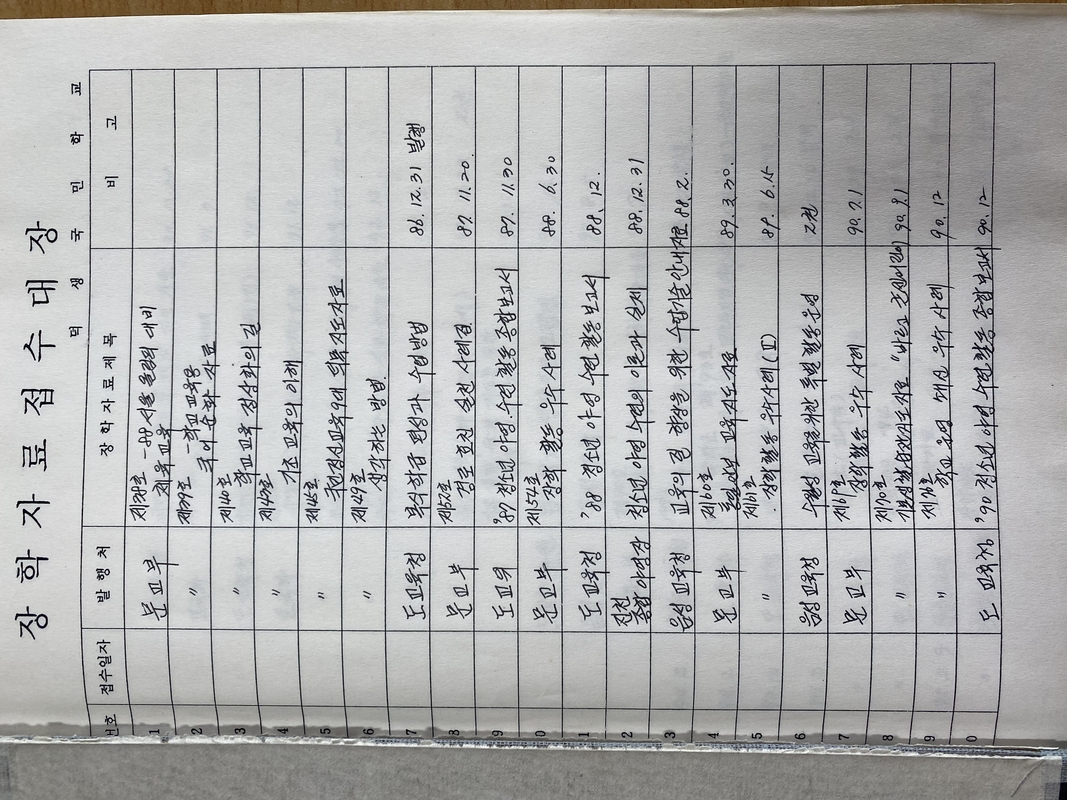 장학자료접수대장
덕생국민학교
번호 접수일자 발행처 장학자료제목 비고
1 문교부 제38호 -88서울올림픽 대비
체육교육
2 〃 제39호 -학교교육용
국어 순화 자료
3 〃 제40호
학교교육 정상화의 길
4 〃 제43호
기초교육의 이해
5 〃 제45호
국민정신교육에 의한 지도자료
6 〃 제49호
생각하는 방법
7 도교육청 복식학급 편성과 수업방법 86. 12. 31 발행
8 문교부 제52호
경로효친 실천 사례집 87. 11. 20.
9 도교위 '87 청소년 야영 수련 활동 종합보고서 87. 11. 30
0 문교부 제54호
장학 활동 우수사례 88. 6. 30
1 도교육청 '88 청소년 야영 수련 활동 보고서 88. 12.
2 진천
종합야영장 청소년 야영 수련의 이론과 실제 88. 12. 31
3 음성교육청 교육의 질 향상을 위한 수업기술 안내자료 88. 2.
4 문교부 제60호
통일안보 교육 지도자료 89. 3. 30.
5 〃 제61호
장학활동 우수사례(Ⅱ) 89. 6. 15
6 음성교육청 수월성 교육을 위한 특별활동 운영 2권
7 문교부 제69호
장학활동 우수 사례 90. 7. 1
8 〃 제70호
지도자료 "바르고 굳센 어린이 90. 9. 1
9 〃 제76호
학교운영 개선 우수 사례 90. 12
0 도 교육청 '90 청소년 야영 수련활동 종합보고서 90. 12-